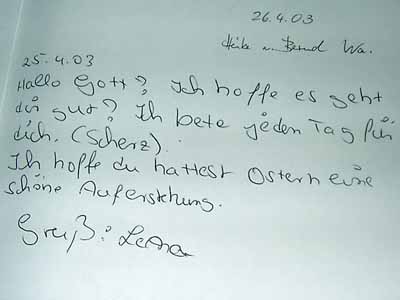 26.4.03
Heike u. Bernd Wa.
25.4.03
Hallo Gott? Ich hoffe es geht
dir gut? Ich bete jeden Tag für
dich. (Scherz).
Ich hoffe du hattest Ostern eine
schöne Auferstehung.
Gruß: Lena